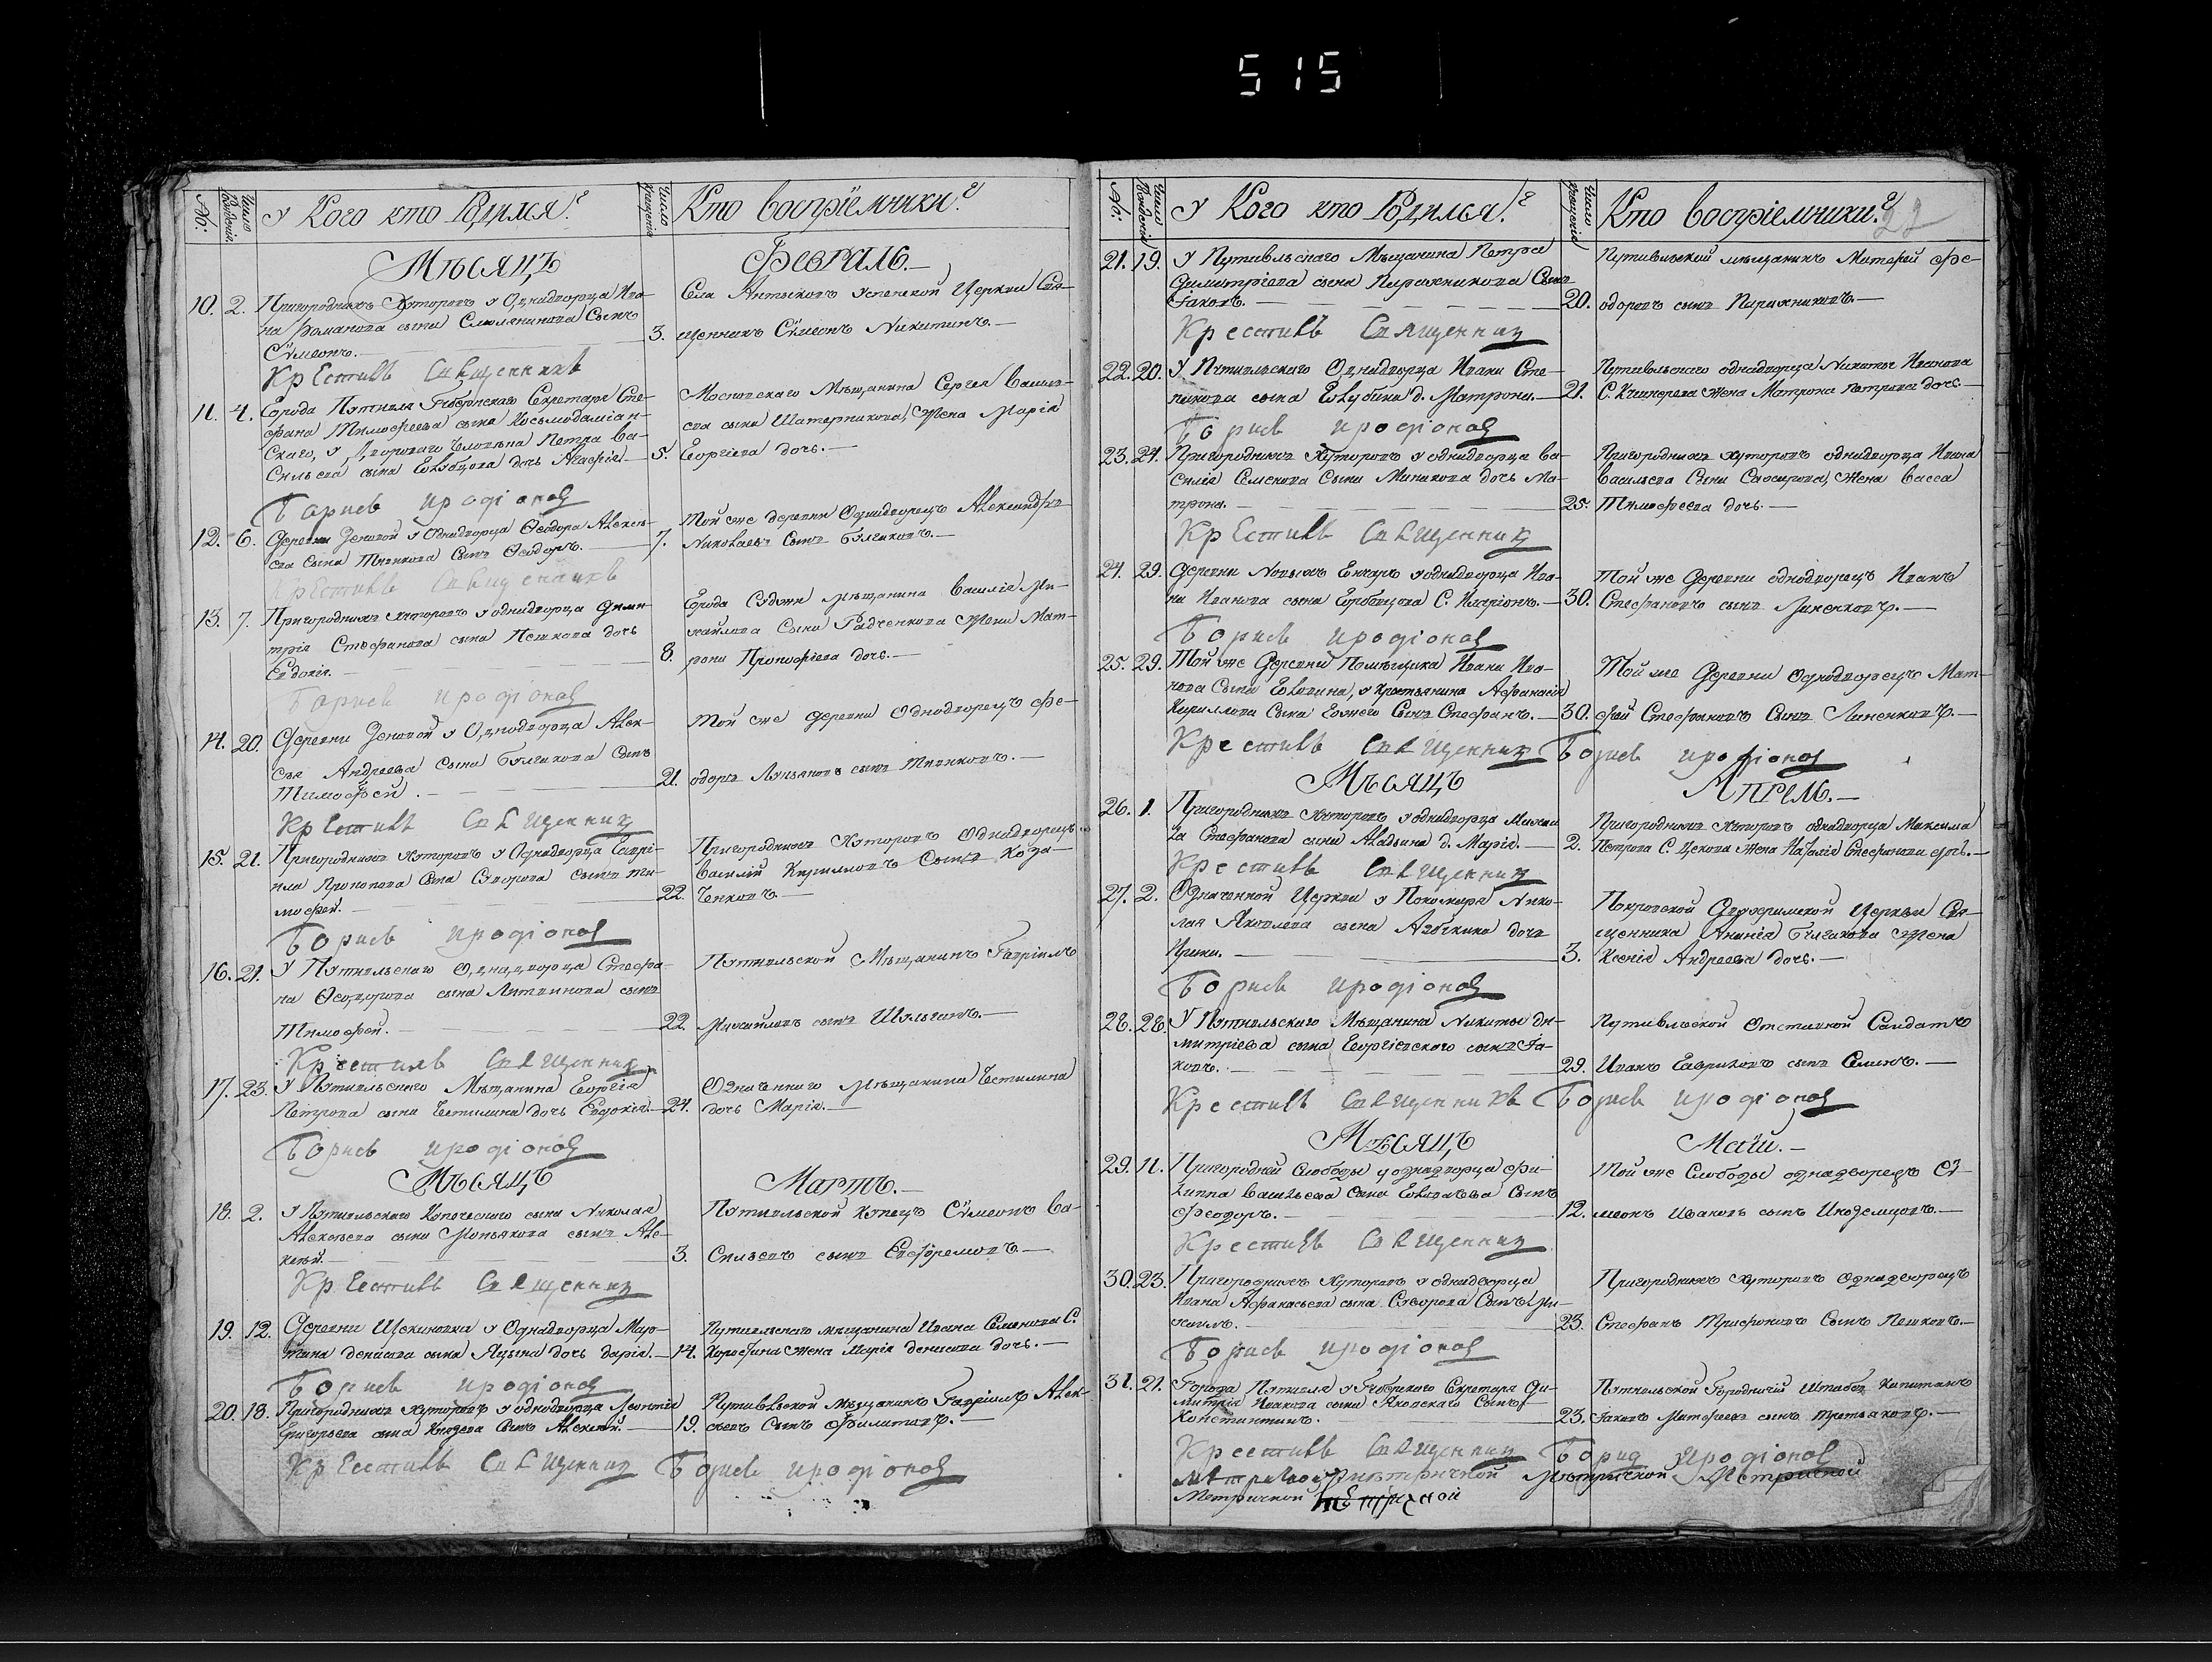 515
№: Число Рожденія У Кого кто Родился? Число крещенія Кто восприемники?
Мѣсяцъ Февраль.
10. 2. Пригороднихъ Хуторовъ у Однадворца Ива-
на Романова сына Смолянинова Сынъ
Сѵмеонъ.
Села Антыковъ Успенской Церкви Свя-
3. щенникъ Сѵмеонъ Никитинъ.
Крестилъ Священникъ
11. 4. Города Путивля Губернскаго Секретаря Сте-
фана Тимофеева сына Козьмодаміан-
скаго, у Дворового Человека Петра Ва-
сильева сына дочь Агафія
Московскаго Мѣщанина Сергея Василь-
ева сына Шатерникова, Жена Марія
5. Георгіева дочь.
Борисъ Иродіонов
12. 6. Деревни Зеновой у Однадворца Ѳеодора Алексѣ-
ева сына Тненкова Сынъ Ѳеодоръ.
Той же деревни Однадворецъ Александръ
7. Николаевъ Сынъ Булгаковъ.
Крестилъ Священникъ
13. 7. Пригороднихъ хуторовъ у однадворца Дими-
трія Стефанова сына Пешкова дочь
Евдокія.
Города Суджи Мѣщанина Василія Ми-
хайлова Сына Радченкова Жена Мат-
8. рона Прокофіева дочь.
Борисъ Иродіонов
14. 20. Деревни Зеновой у Однодворца Алек-
сѣя Андреева Сына Булгакова Сынъ
Тимофей.
Той же деревни Однодворецъ Фе-
21. одоръ Лукьяновъ сынъ Тненковъ.
Крестилъ Священник
15. 21. Пригороднихъ хуторовъ у Однадворца Гаврі-
ила Прокопова Сына Суворова сынъ Ти-
мофей.
Пригороднихъ Хуторовъ Однадворецъ
Василій Кирилловъ Сынъ Коза-
22. ченковъ.
Борисъ Иродіонов
16. 21. У Путивльскаго Однадворца Стефа-
на Ѳеодорова сына Литвинова сынъ
Тимофей.
Путивльской Мѣщанинъ Гавріилъ
22. Михайловъ сынъ Шульгинъ.
Крестилъ Священник
17. 23. У Путивльскаго Мѣщанина Георгія
Петрова сына Чстилина дочь Евдокія.
Означеннаго Мѣщанина Чстилина
24. дочь Марія.
Борисъ Иродіонов
Мѣсяцъ Мартъ.
18. 2. У Путивльскаго Купеческаго сына Николая
Алексѣева сына Мопьякова сынъ Але-
ксѣй.
Путивльской Купецъ Сѵмеонъ Ва-
3. сильевъ сынъ Евфремовъ.
Крестилъ Священник
19. 12. Деревни Щекиновки у Однадворца Мар-
тина Денисова сына Яцына дочь Дарія.
Путивльскаго мѣщанина Ивана Семенова С.
14. Коростина Жена Марія Денисова дочь.
Борисъ Иродіонов
20. 18. Пригороднихъ хуторовъ у однодворца Леонтія
Григорьева сына Князева Сынъ Алексѣй.
Путивльской мѣщанинъ Гавріилъ Алек-
19. сѣевъ Сынъ Филиповъ.
Крестилъ Священник Борисъ Иродіонов
№: Число Рожденія У Кого кто Родился? Число крещенія Кто восприемники? 22
21. 19. У Путивльскаго Мѣщанина Петра
Димитріева сына Пирожникова Сынъ
Іаковъ.
Путивльской мѣщанинъ Матфей Фе-
20. одоровъ сынъ Пирожниковъ.
Крестилъ Священник
22. 20. У Путивльскаго Однадворца Ивана Сте-
панова сына Голубина д. Матрона.
Путивльскаго однадворца Никиты Иванова
21. С. Жена Матрона Петрова дочь.
Борисъ Иродіонов
23. 24. Пригороднихъ Хуторовъ у однадворца Ва-
силія Семенова Сына Минакова дочь Ма-
трона.
Пригороднихъ хуторовъ однадворца Ивана
Васильева Сына Жена Васса
25. Тимофеева дочь.
Крестилъ Священник
24. 29. Деревни Новыхъ Гончаръ у однадворца Ива-
на Иванова сына Горбовцова С. Иларіонъ.
Той же Деревни однодворецъ Иванъ
30. Стефановъ сынъ Линенковъ.
Борисъ Иродіонов
25. 29. Той же Деревни Помѣщика Ивана Ива-
нова Сына Головина, у крестьянина Афанасія
Кириллова Сына Сынъ Стефанъ.
Той же Деревни Однодворецъ Мат-
30. фей Стефановъ Сынъ Линенковъ.
Крестилъ Священник Борисъ Иродіонов
Мѣсяцъ Апрель.
26. 1. Пригороднихъ хуторовъ у однадворца Михаи
ла Стефанова сына Аладьина д. Марія.
Пригороднихъ хуторовъ однадворца Максима
2. Петрова С. Цекова Жена Наталія Стефанова дочь.
Крестилъ Священник
27. 2. Означенной Церкви у Понамаря Нико-
лая Яковлева сына Азбукина дочь
Ирина.
Покровской Церкви Свя-
щенника Ананія Булгакова Жена
3. Ксенія Андреева дочь.
Борисъ Иродіонов
28. 28. У Путивльскаго Мѣщанина Никиты Ди-
митріева сына Георгіевскаго сынъ Іа-
ковъ.
Путивльской Отставной Салдатъ
29. Иванъ Гавриловъ сынъ Семинъ.
Крестилъ Священникъ Борисъ Иродіонов
Мѣсяцъ Маій.
29. 11. Пригородней Слободы у однадворца Фи-
липпа Васильева сына Головачева Сынъ
Феодоръ.
Той же Слободы однадворецъ Сѵ-
12. меонъ Ивановъ сынъ Иноземцовъ.
Крестилъ Священник
30. 23. Пригороднихъ хуторовъ у однадворца
Ивана Афанасьева сына Суворова Сынъ
Пригороднихъ хуторовъ Однадворецъ
23. Стефанъ Трифоновъ Сынъ Пешковъ.
Борисъ Иродіонов
31. 21. Города Путивля у Губернскаго Секретаря Ди-
митрія Иванова сына Яновскаго Сынъ
Константинъ.
Путивльской Городничій Штабсъ Капитанъ
23. Іаковъ Матфеевъ сынъ Третьяковъ.
Крестилъ Священник Борис Иродіонов
Метричной Метричной Метричной
Метричной